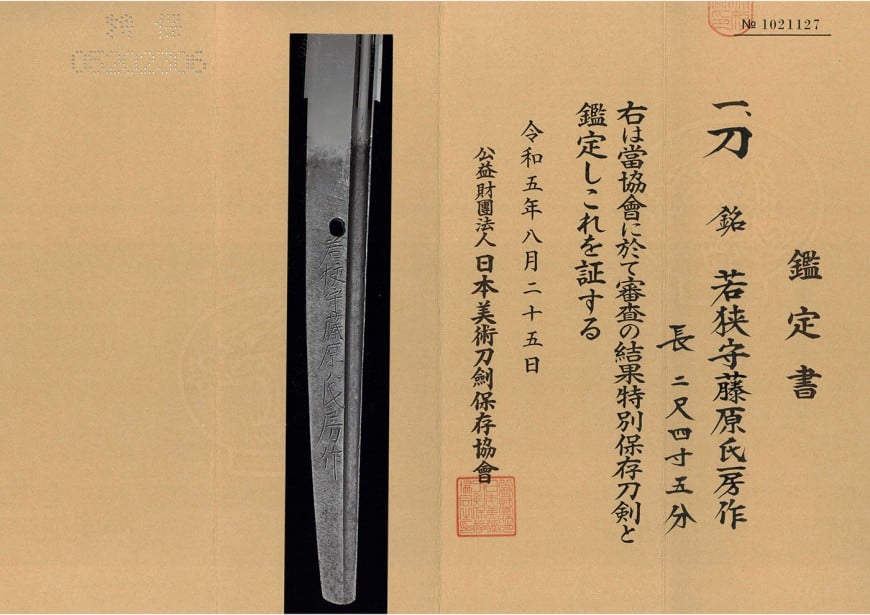 № 1021127
鑑定書
一、刀 銘 若狭守藤原氏房作
長 二尺四寸五分
右は當協會に於て審査の結果特別保存刀剣と
鑑定しこれを証する
令和五年八月二十五日
公益財團法人 日本美術刀劍保存協會
若狭守藤原氏房作